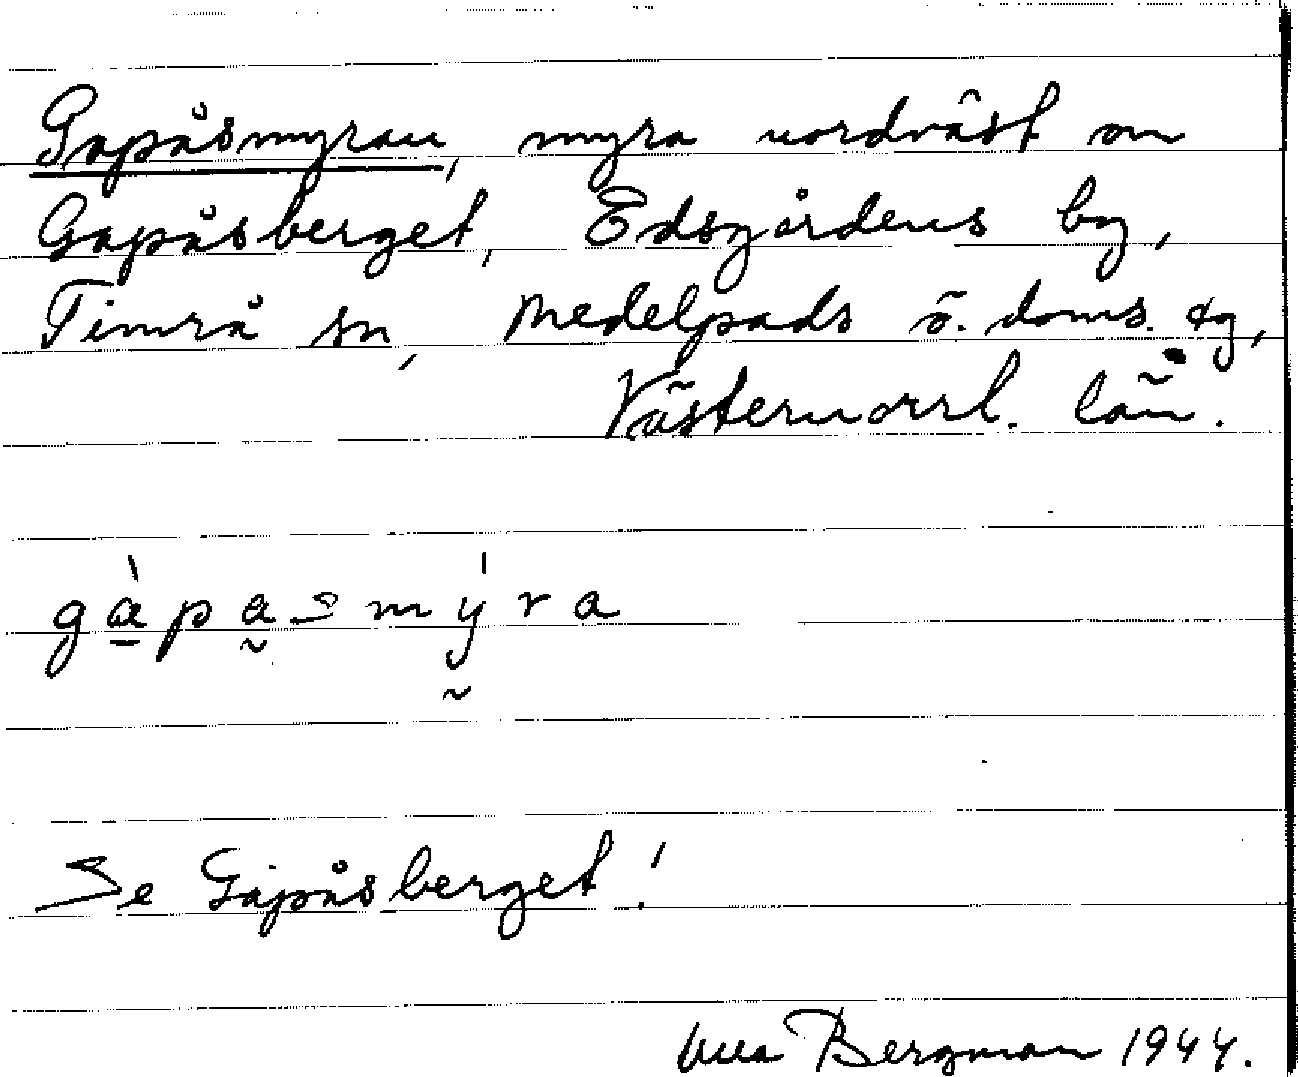 Gapåsmyran, myra nordväst om
Gapåsberget, Edsgårdens by,
Timrå sn, Medelpads ö. doms. tg,
Västernorrl. län.
gàpasmýra
Se Gapåsberget!
Bergman 1944.